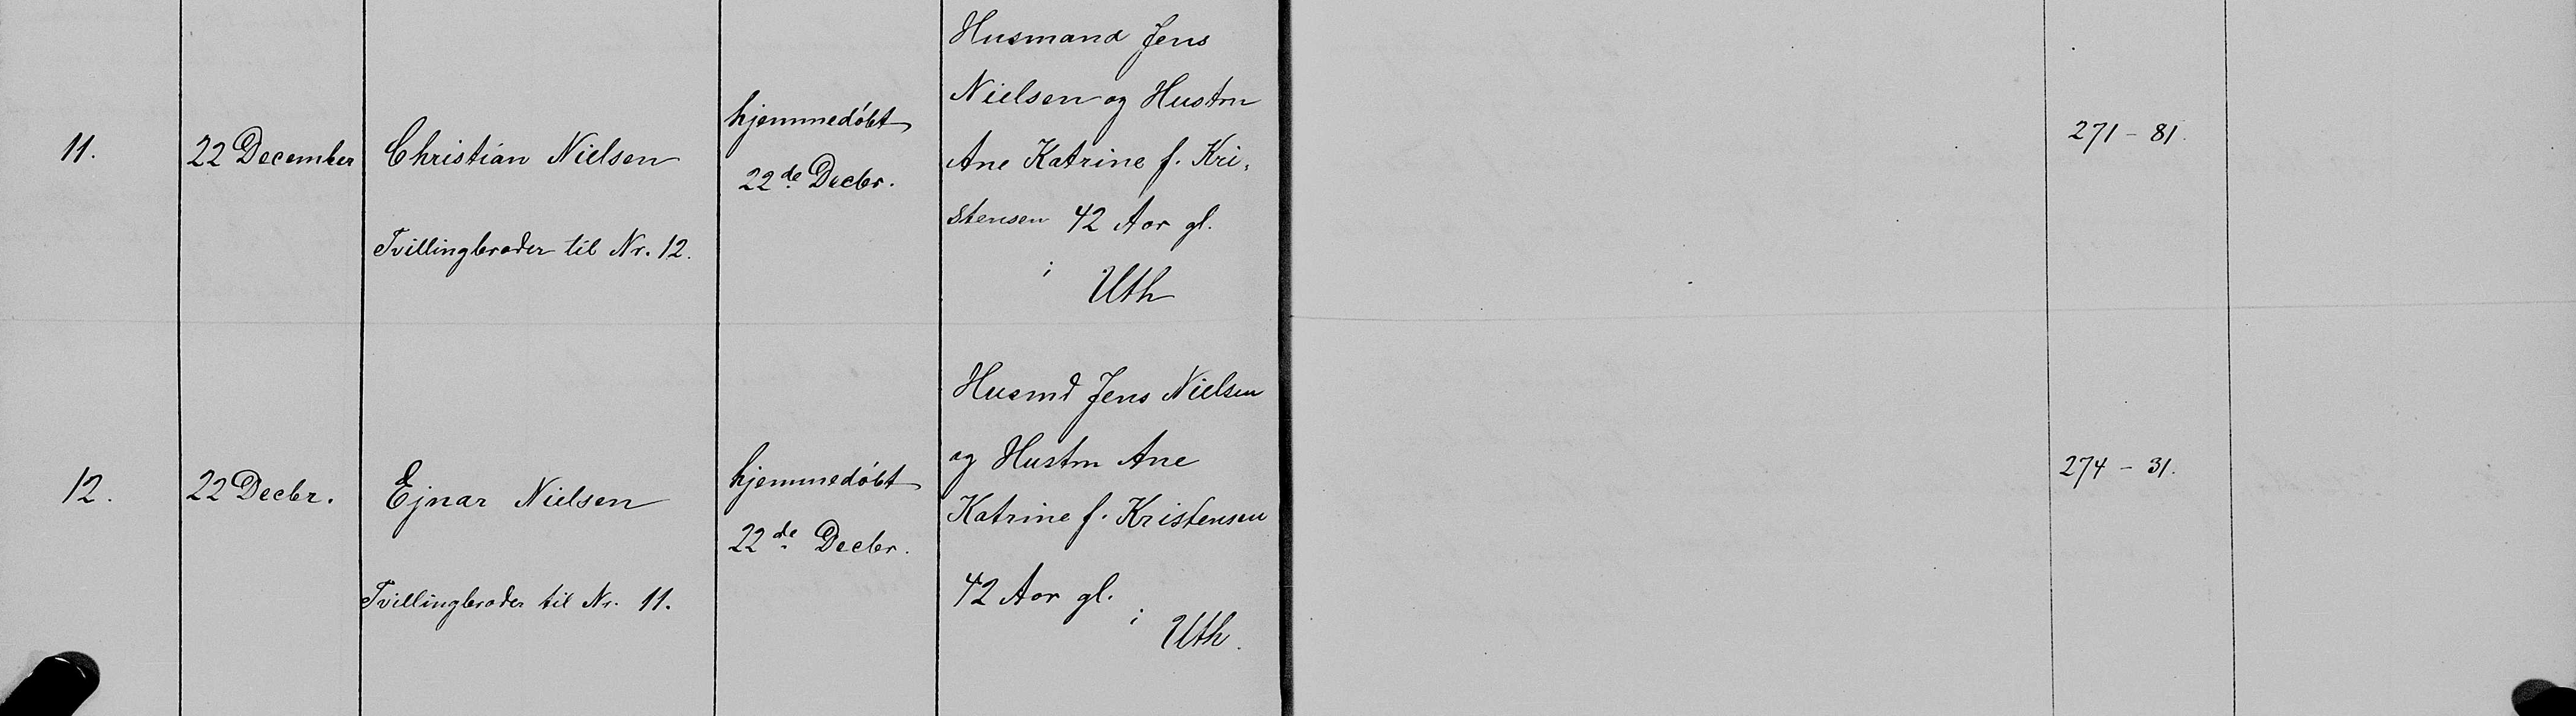 11.
22 December
Christian Nielsen
Tvillingbroder til Nr. 12.
hjemmedøbt
22de Decbr.
Husmand Jens
Nielsen og Hustru
Ane Katrine f. Kri-
stensen 42 Aar gl.
i Uth
271 - 81.
12.
22 Decbr.
Ejnar Nielsen
Tvillingbroder til Nr. 11.
hjemmedøbt
22de Decbr.
Husmd Jens Nielsen
og Hustru Ane
Katrine f. Kristensen
42 Aar gl.
i Uth.
274 - 31.